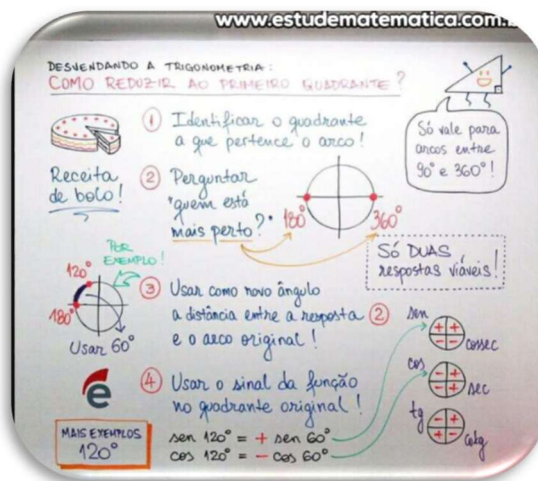 www.estudematematica.com.b
DESVENDANDO A TRIGONOMETRIA:
COMO REDUZIR AO PRIMEIRO QUADRANTE?
Receita
de bolo!
① Identificar o quadrante
a que pertence o arco!
Só vale para
arcos entre
90° e 360°!
② Perguntar
"quem está
mais perto?"
180°
360°
Só DUAS
respostas viáveis!
POR
EXEMPLO!
120°
180°
Usar 60°
③ Usar como novo ângulo
a distância entre a resposta ②
e o arco original!
④ Usar o sinal da função
no quadrante original!
sen 120° = + sen 60°
cos 120° = - cos 60°
sen
+ +
- -
cossec
cos
- +
- +
sec
tg
- +
+ -
cotg
e
MAIS EXEMPLOS
120°